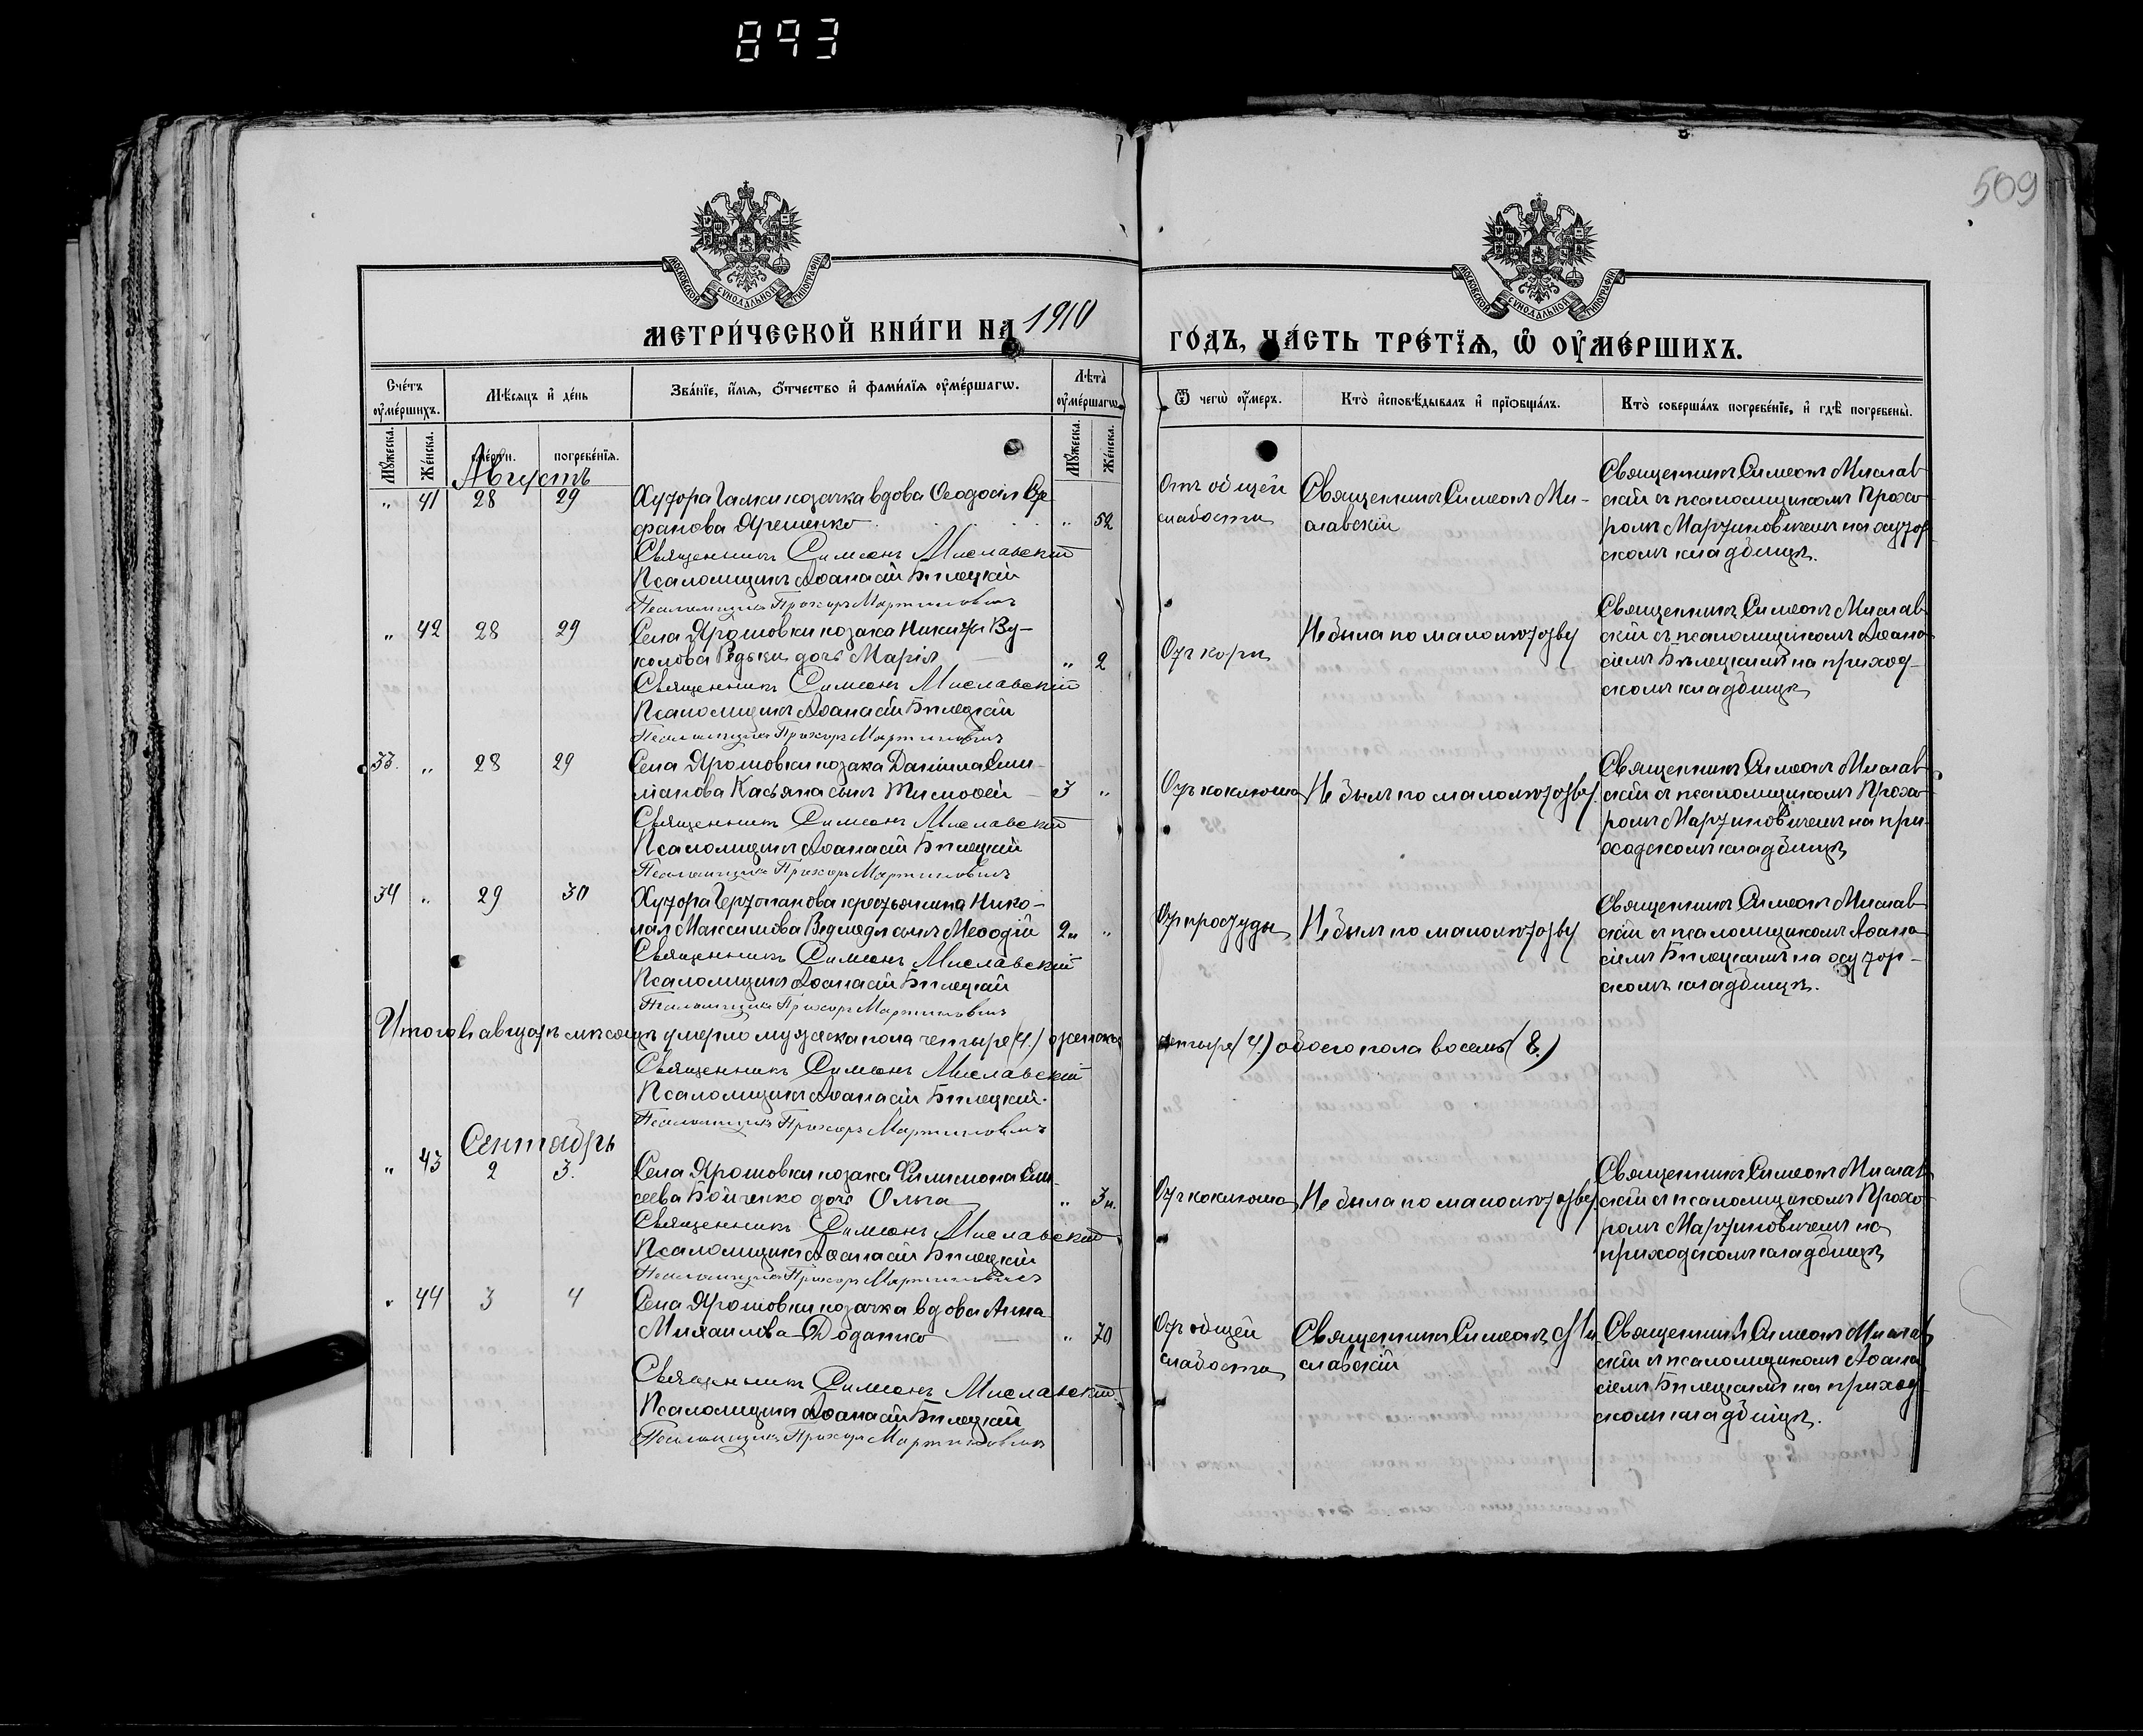 893
509
МОСКОВСКОЙ СѴНОДАЛЬНОЙ ТИПОГРАФІИ
МОСКОВСКОЙ СѴНОДАЛЬНОЙ ТИПОГРАФІИ
МЕТРИ́ЧЕСКОЙ КНИ́ГИ НА 1910
ГО́ДЪ, ЧА́СТЬ ТРЕ́ТЇѦ, Ѡ҆ ОУ҆МЕ́РШИХЪ.
Сче́тъ оу҆ме́ршихъ.
Мѣ́сяцъ и҆ де́нь
Зва́нїе, и҆́мѧ, ѻ҆́тчество и҆ фами́лїѧ оу҆ме́ршагѡ.
Лѣ́та оу҆ме́ршагѡ.
Ѿ чегѡ̀ оу҆́меръ.
Кто̀ и҆сповѣ́дывалъ и҆ прїѡбща́лъ.
Кто̀ соверша́лъ погребе́нїе, и҆ гдѣ̀ погребены̀.
Мꙋ́жеска.
Же́нска.
сме́рти.
погребе́нїѧ.
Мꙋ́жеска.
Же́нска.
Августъ
" 41 28 29 Хутора Гамки козачка вдова Ѳеодосія
фанова Яременко " 52
Священникъ Симеонъ Миславскій
Псаломщикъ Аѳанасій Билецкій
Псаломщикъ Прохоръ Мартиновичъ
Отъ общей
слабости
Священникъ Симеонъ Ми-
славскій
Священникъ Симеонъ Мислав
скій съ псаломщикомъ Прохо
ромъ Мартиновичемъ на хутор
скомъ кладбищѣ.
" 42 28 29 Села Ярошовки козака Никиты Ву-
колова Редьки дочь Марія " 2
Священникъ Симеонъ Миславскій
Псаломщикъ Аѳанасій Билецкій
Псаломщикъ Прохоръ Мартиновичъ
Отъ кори
Не была по малолѣтству
Священникъ Симеонъ Мислав
скій съ псаломщикомъ Аѳана
сіемъ Билецкимъ на приход-
скомъ кладбищѣ
33. " 28 29 Села Ярошовки козака Даніила
Касьяна сынъ Тимоѳей 3 "
Священникъ Симеонъ Миславскій
Псаломщикъ Аѳанасій Билецкій
Псаломщикъ Прохоръ Мартиновичъ
Отъ коклюша
Не былъ по малолѣтству
Священникъ Симеонъ Мислав
скій съ псаломщикомъ Прохо
ромъ Мартиновичемъ на при-
ходскомъ кладбищѣ
34 " 29 30 Хутора крестьянина Нико-
лая Максимова Ведмедя сынъ Меѳодій 2 "
Священникъ Симеонъ Миславскій
Псаломщикъ Аѳанасій Билецкій
Псаломщикъ Прохоръ Мартиновичъ
Отъ простуды
Не былъ по малолѣтству
Священникъ Симеонъ Мислав
скій съ псаломщикомъ Аѳана
сіемъ Билецкимъ на хутор-
скомъ кладбищѣ.
Итого въ августѣ мѣсяцѣ умерло мужеска пола четыре (4.) женска
четыре (4.) обоего пола восемь (8.)
Священникъ Симеонъ Миславскій
Псаломщикъ Аѳанасій Билецкій.
Псаломщикъ Прохоръ Мартиновичъ
Сентябрь
" 43 2 3. Села Ярошовки козака Филимона
сеева Бойченко дочь Ольга " 3
Священникъ Симеонъ Миславскій
Псаломщикъ Аѳанасій Билецкій
Псаломщикъ Прохоръ Мартиновичъ
Отъ коклюша
Не была по малолѣтству
Священникъ Симеонъ Мислав
скій съ псаломщикомъ Прохо
ромъ Мартиновичемъ на
приходскомъ кладбищѣ
" 44 3 4 Села Ярошовки козачка вдова Анна
Михаилова " 70
Священникъ Симеонъ Миславскій
Псаломщикъ Аѳанасій Билецкій
Псаломщикъ Прохоръ Мартиновичъ
Отъ общей
слабости
Священникъ Симеонъ Ми
славскій
Священникъ Симеонъ Мислав
скій съ псаломщикомъ Аѳана
сіемъ Билецкимъ на приход
скомъ кладбищѣ.